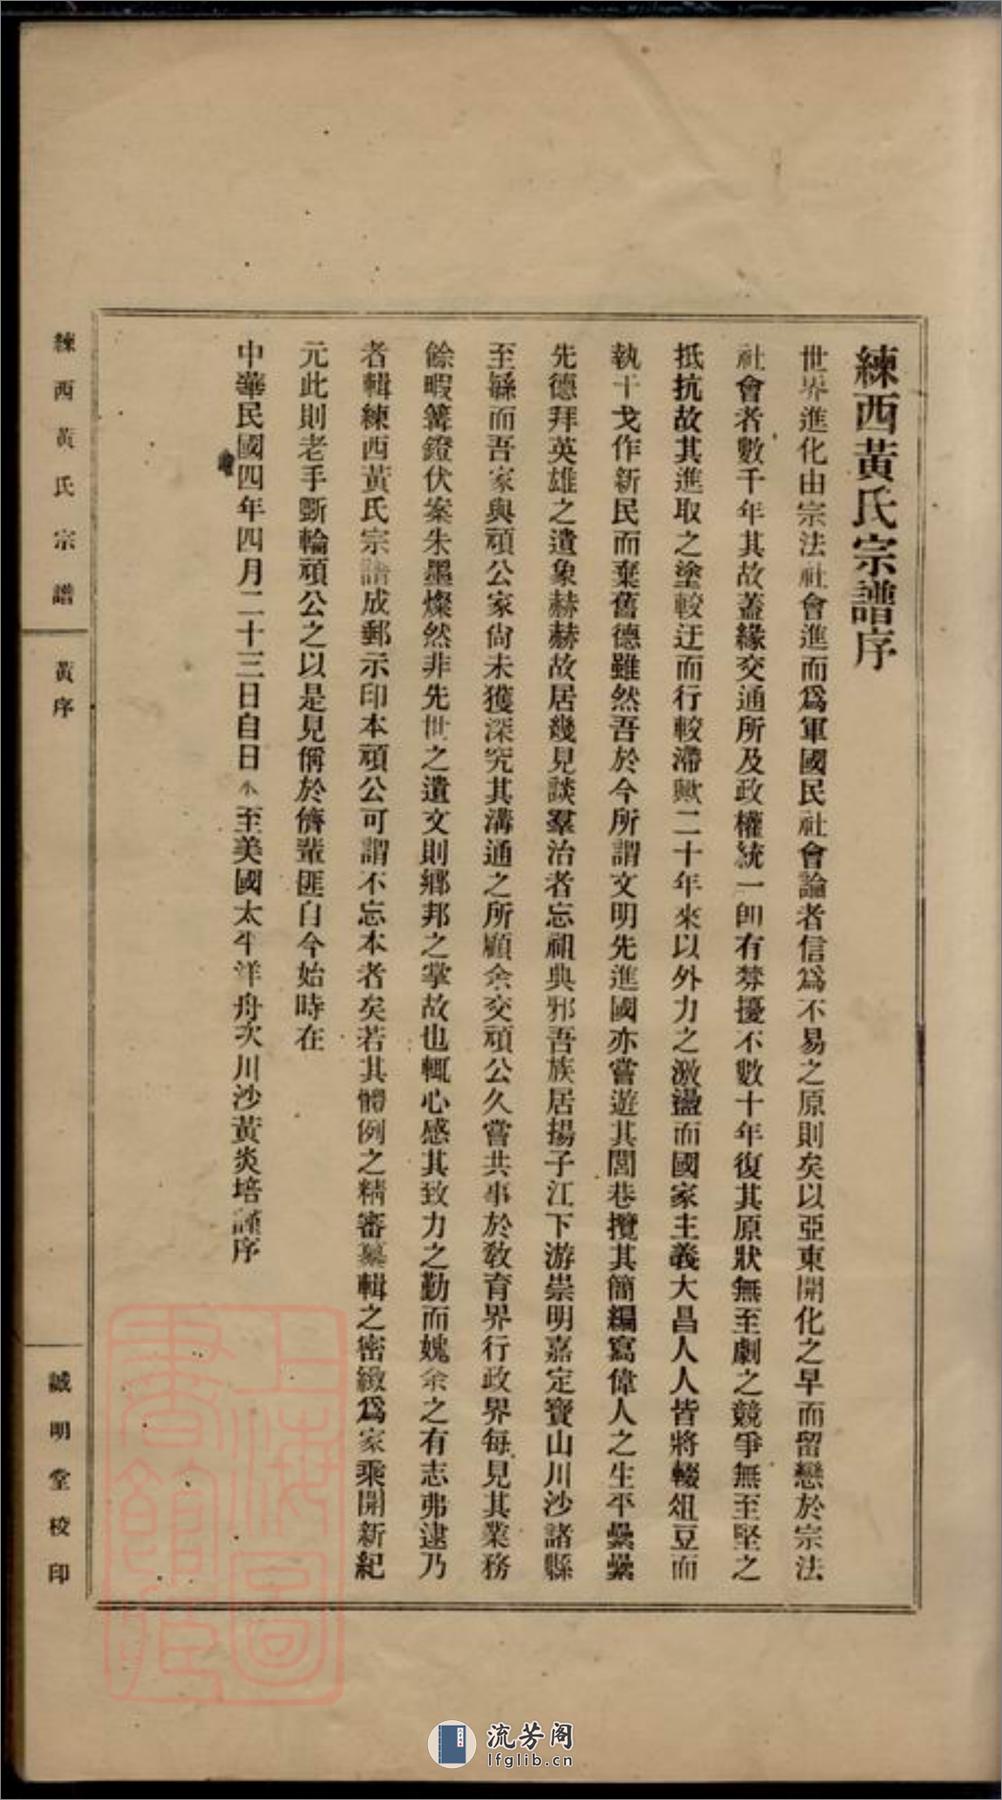 練西黃氏宗譜序
世界進化由宗法社會進而爲軍國民社會論者信爲不易之原則矣以亞東開化之早而留戀於宗法
社會者數千年其故蓋緣交通所及政權統一卽有棼擾不數十年復其原狀無至劇之競爭無至堅之
抵抗故其進取之塗較迂而行較滯歟二十年來以外力之激盪而國家主義大昌人人皆將輟俎豆而
執干戈作新民而棄舊德雖然吾於今所謂文明先進國亦嘗遊其閭巷攬其簡編寫偉人之生平纍纍
先德拜英雄之遺象赫赫故居幾見談羣治者忘祖典邪吾族居揚子江下游崇明嘉定寶山川沙諸縣
至緐而吾家與頑公家尙未獲深究其溝通之所顧余交頑公久嘗共事於敎育界行政界每見其業務
餘暇篝鐙伏案朱墨燦然非先世之遺文則鄉邦之掌故也輒心感其致力之勤而媿余之有志弗逮乃
者輯練西黃氏宗譜成郵示印本頑公可謂不忘本者矣若其體例之精審纂輯之密緻爲家乘開新紀
元此則老手斲輪頑公之以是見偁於儕輩匪自今始時在
中華民國四年四月二十三日自日本至美國太平洋舟次川沙黃炎培謹序
練西黃氏宗譜
黃序
誠明堂校印
上海圖書館藏
流芳阁
lfglib.cn